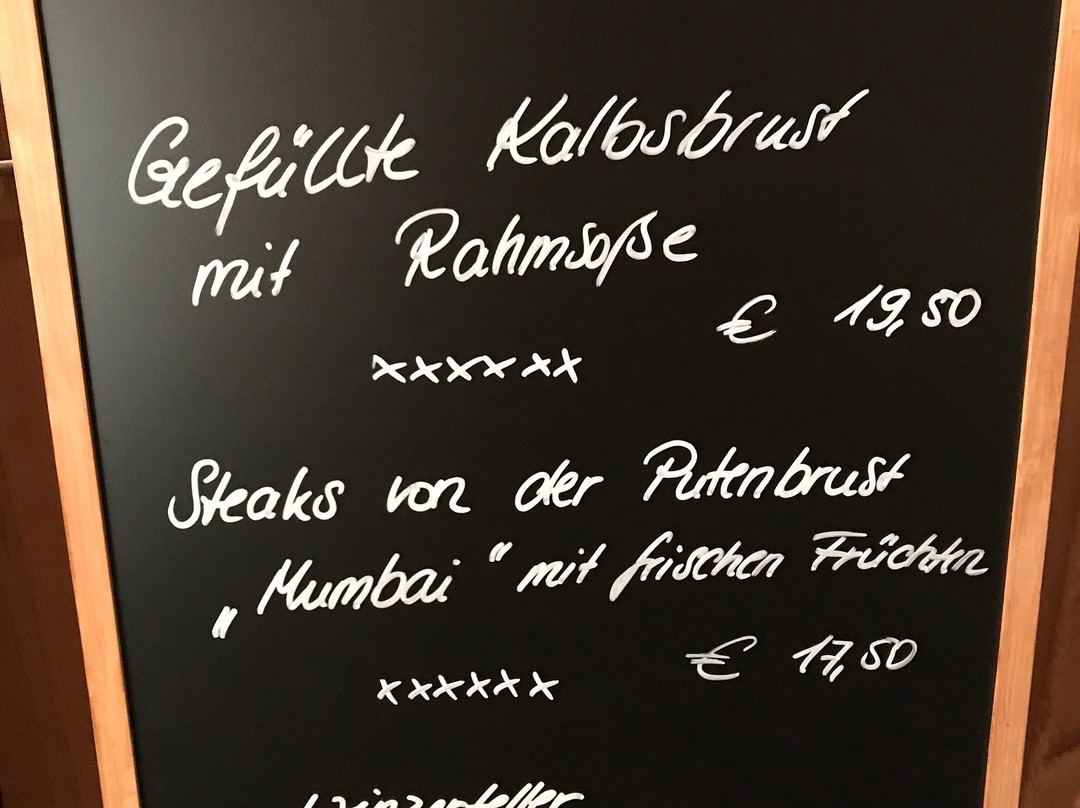 Gefüllte Kalbsbrust
mit Rahmsoße
€ 19,50
xxxxxx
Steaks von der Putenbrust
„Mumbai“ mit frischen Früchten
€ 17,50
xxxxxx
Winzerteller